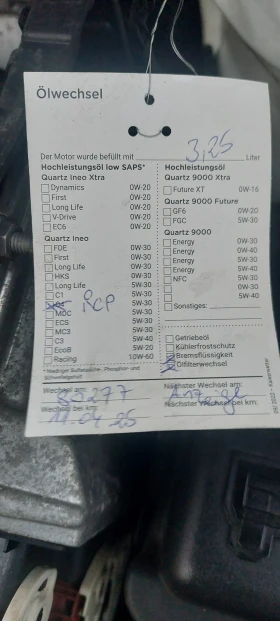 Ölwechsel
Der Motor wurde befüllt mit 3,25 Liter
Hochleistungsöl low SAPS*
Quartz Ineo Xtra
Dynamics 0W-20
First 0W-20
Long Life 0W-20
V-Drive 0W-20
EC6 0W-20
Quartz Ineo
FDE 0W-30
First 0W-30
Long Life 0W-30
HKS 0W-30
Long Life 5W-30
C1 5W-30
5W-30
RCP
MDC 5W-30
ECS 5W-30
MC3 5W-30
C3 5W-40
EcoB 5W-20
Racing 10W-60
Hochleistungsöl
Quartz 9000 Xtra
Future XT 0W-16
Quartz 9000 Future
GF6 0W-20
FGC 5W-30
Quartz 9000
Energy 0W-30
Energy 0W-40
Energy 5W-30
Energy 5W-40
NFC 5W-30
0W-30
5W-40
Sonstiges:
Getriebeöl
Kühlerfrostschutz
Bremsflüssigkeit
Ölfilterwechsel
* Niedriger Sulfatasche-, Phosphor- und
Schwefelgehalt
Wechsel am:
Wechsel bei km:
11.04.25
Nächster Wechsel am:
Anzeige
Nächster Wechsel bei km: